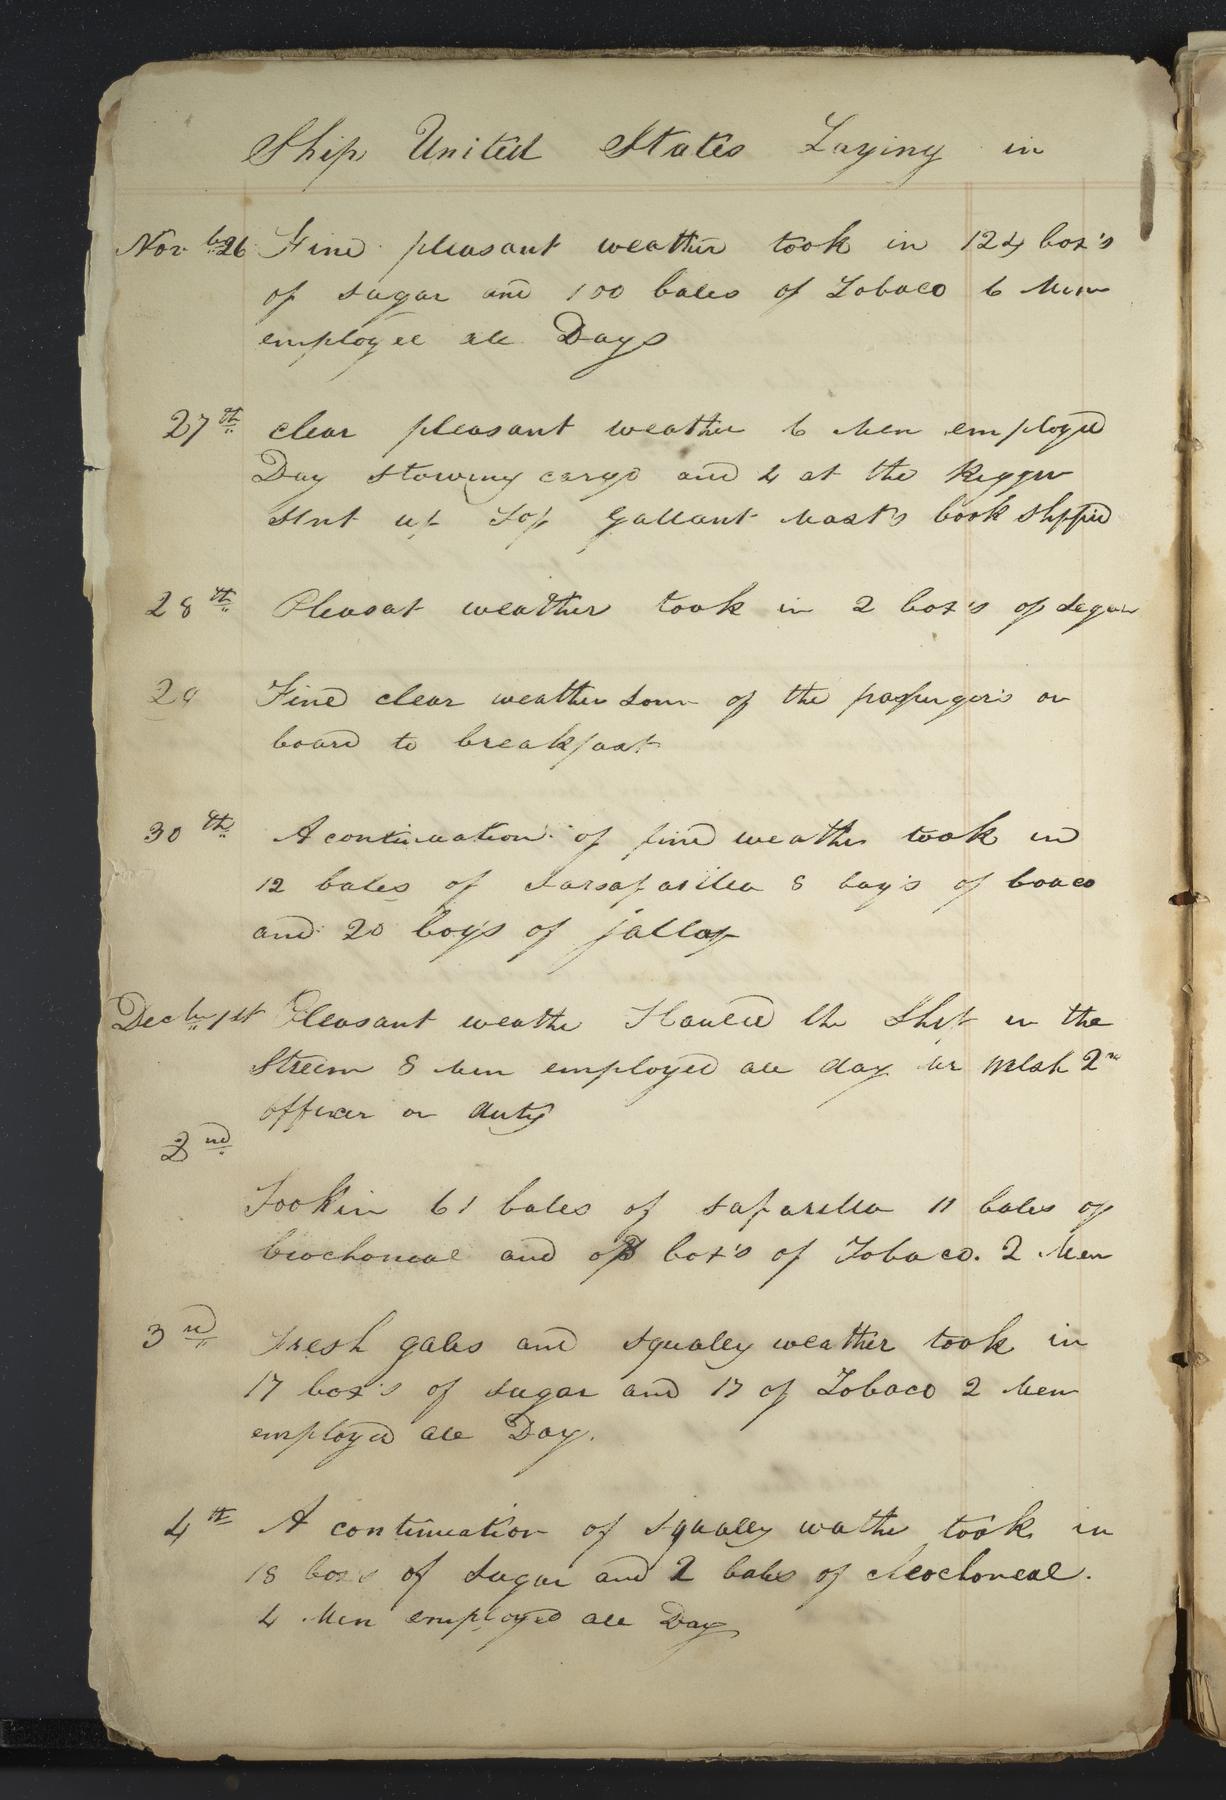 Ship United States Laying in
Novbr 26 Fine pleasant weather took in 124 box's
of sugar and 100 bales of Tobaco 6 Men
employee all Days
27th clear pleasant weather 6 Men employed
Day stowing cargo and 4 at the
Sent up Top Gallant Mast's Cook Shpped
28th Pleasat weather took in 2 box's of Segar
29 Fine clear weather some of the passenger's on
board to breakfast
30th A continuation of fine weather took in
12 bales of Sarsaparilla 8 bag's of
and 20 of jallap
Decbr 1st Pleasant weathe Hauled the Ship in the
Streem 8 Men employed all day Mr Welsh 2nd
officer on duty
2nd
Took in 61 bales of saparilla 11 bales of
and of box's of Tobaco. 2 Men
3rd Fresh gales and squaley weather took in
17 box's of sugar and 17 of Tobaco 2 Men
employed all Day.
4th A continuation of squally wathe took in
18 box's of sugar and 2 bales of
4 Men employed all Day